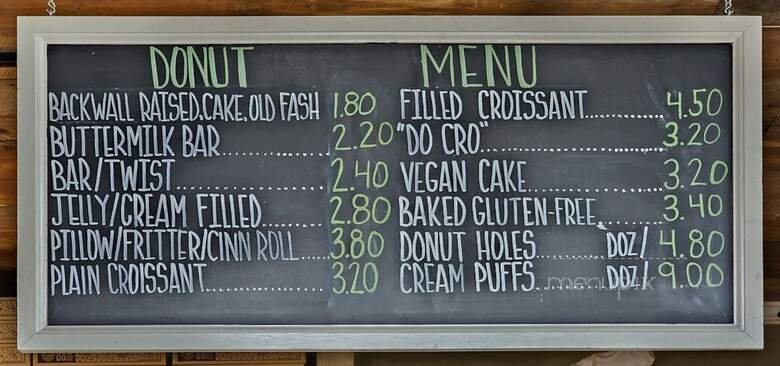 DONUT MENU
BACKWALL RAISED, CAKE, OLD FASH 1.80
BUTTERMILK BAR 2.20
BAR/TWIST 2.40
JELLY/CREAM FILLED 2.80
PILLOW/FRITTER/CINN ROLL 3.80
PLAIN CROISSANT 3.20
FILLED CROISSANT 4.50
"DO CRO" 3.20
VEGAN CAKE 3.20
BAKED GLUTEN-FREE 3.40
DONUT HOLES DOZ/ 4.80
CREAM PUFFS DOZ/ 9.00
menupix